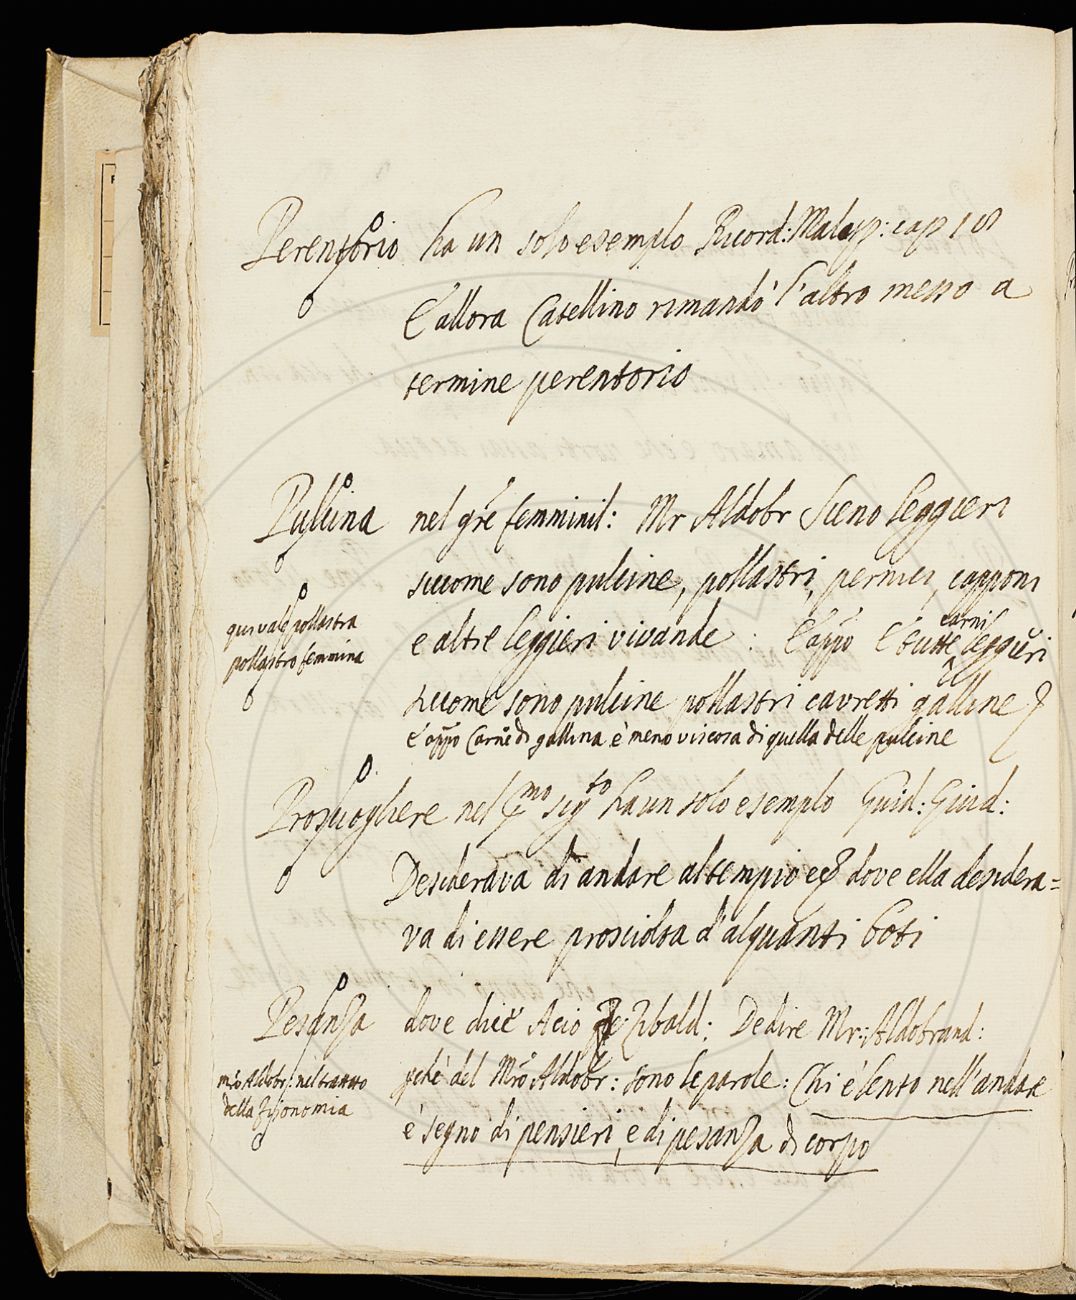 Perentorio ha un solo esemplo. Ricord: Malesp: cap 18
E allora Catellino rimandò l'altro messo a
termine perentorio
Pulcina nel gñe femminil: Mr Aldobr Sieno leggieri
siccome sono pulcine, pollastri, pernici, capponi
qui vale pollastra
pollastro femmina
e altre leggieri vivande: E appo E tutte carni leggieri
siccome sono pulcine pollastri cavretti galline
E appo Carne di gallina è meno viscosa di quella delle pulcine
Prosciogliere nel pmo sigto ha un solo esemplo Guid: Giud:
Desiderava di andare al tempio ec dove ella desidera=
va di essere prosciolta d'alquanti boti
Pesanza dove dice Acio Zibald: De dire Mr: Aldobrand:
mro Aldobr: nel trattato
della fisonomia
pchè del Mro Aldobr: sono le parole: Chi è lento nell'andare
è segno di pensieri, e di pesanza di corpo